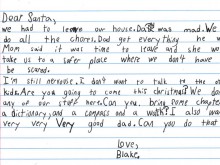 Dear Santa,
we had to leave our house. Dad was mad. We
do all the chores. Dad got everything he w
Mom said it was time to leave and she wou
take us to a safer place where we don't have
be scared.
I'm still nervous. I don't want to talk to the o
kids. Are you going to come this christmas? We do
any of our stuff here. Can you bring some chapte
a dictionary, and a compass and a watch? I also wa
very very very good dad. Can you do that
Love,
Blake